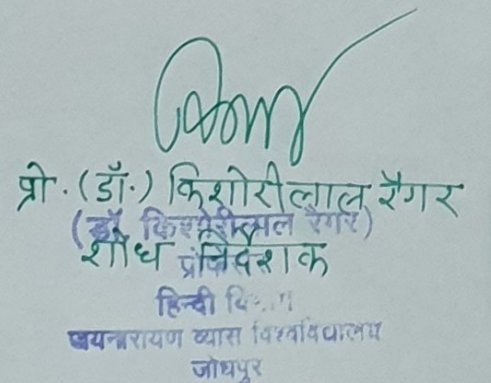 प्रो. (डॉ.) किशोरीलाल रैगर
(डॉ. किशोरीलाल रैगर)
शोध निर्देशक
हिन्दी
जयनारायण व्यास विश्वविद्यालय
जोधपुर